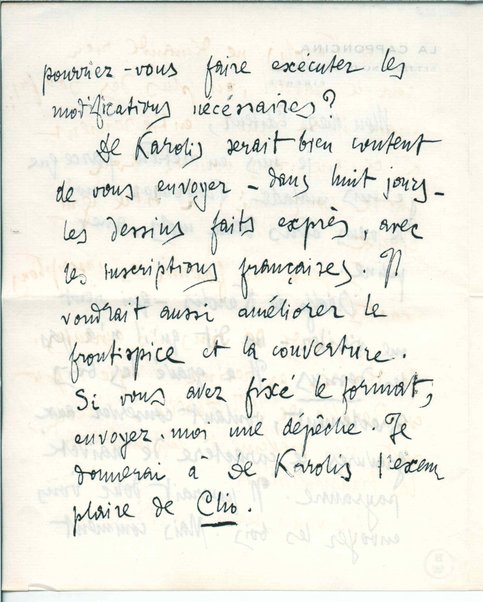 pourriez-vous faire exécuter les
modifications nécessaires?
De Karolis serait bien content
de vous envoyer - dans huit jours -
les dessins faits exprès, avec
les inscriptions françaises. Il
voudrait aussi améliorer le
frontispice et la couverture.
Si vous avez fixé le format,
envoyez-moi une dépêche. Je
donnerai à De Karolis l'exem
plaire de Clio.
LA CAPPONCINA